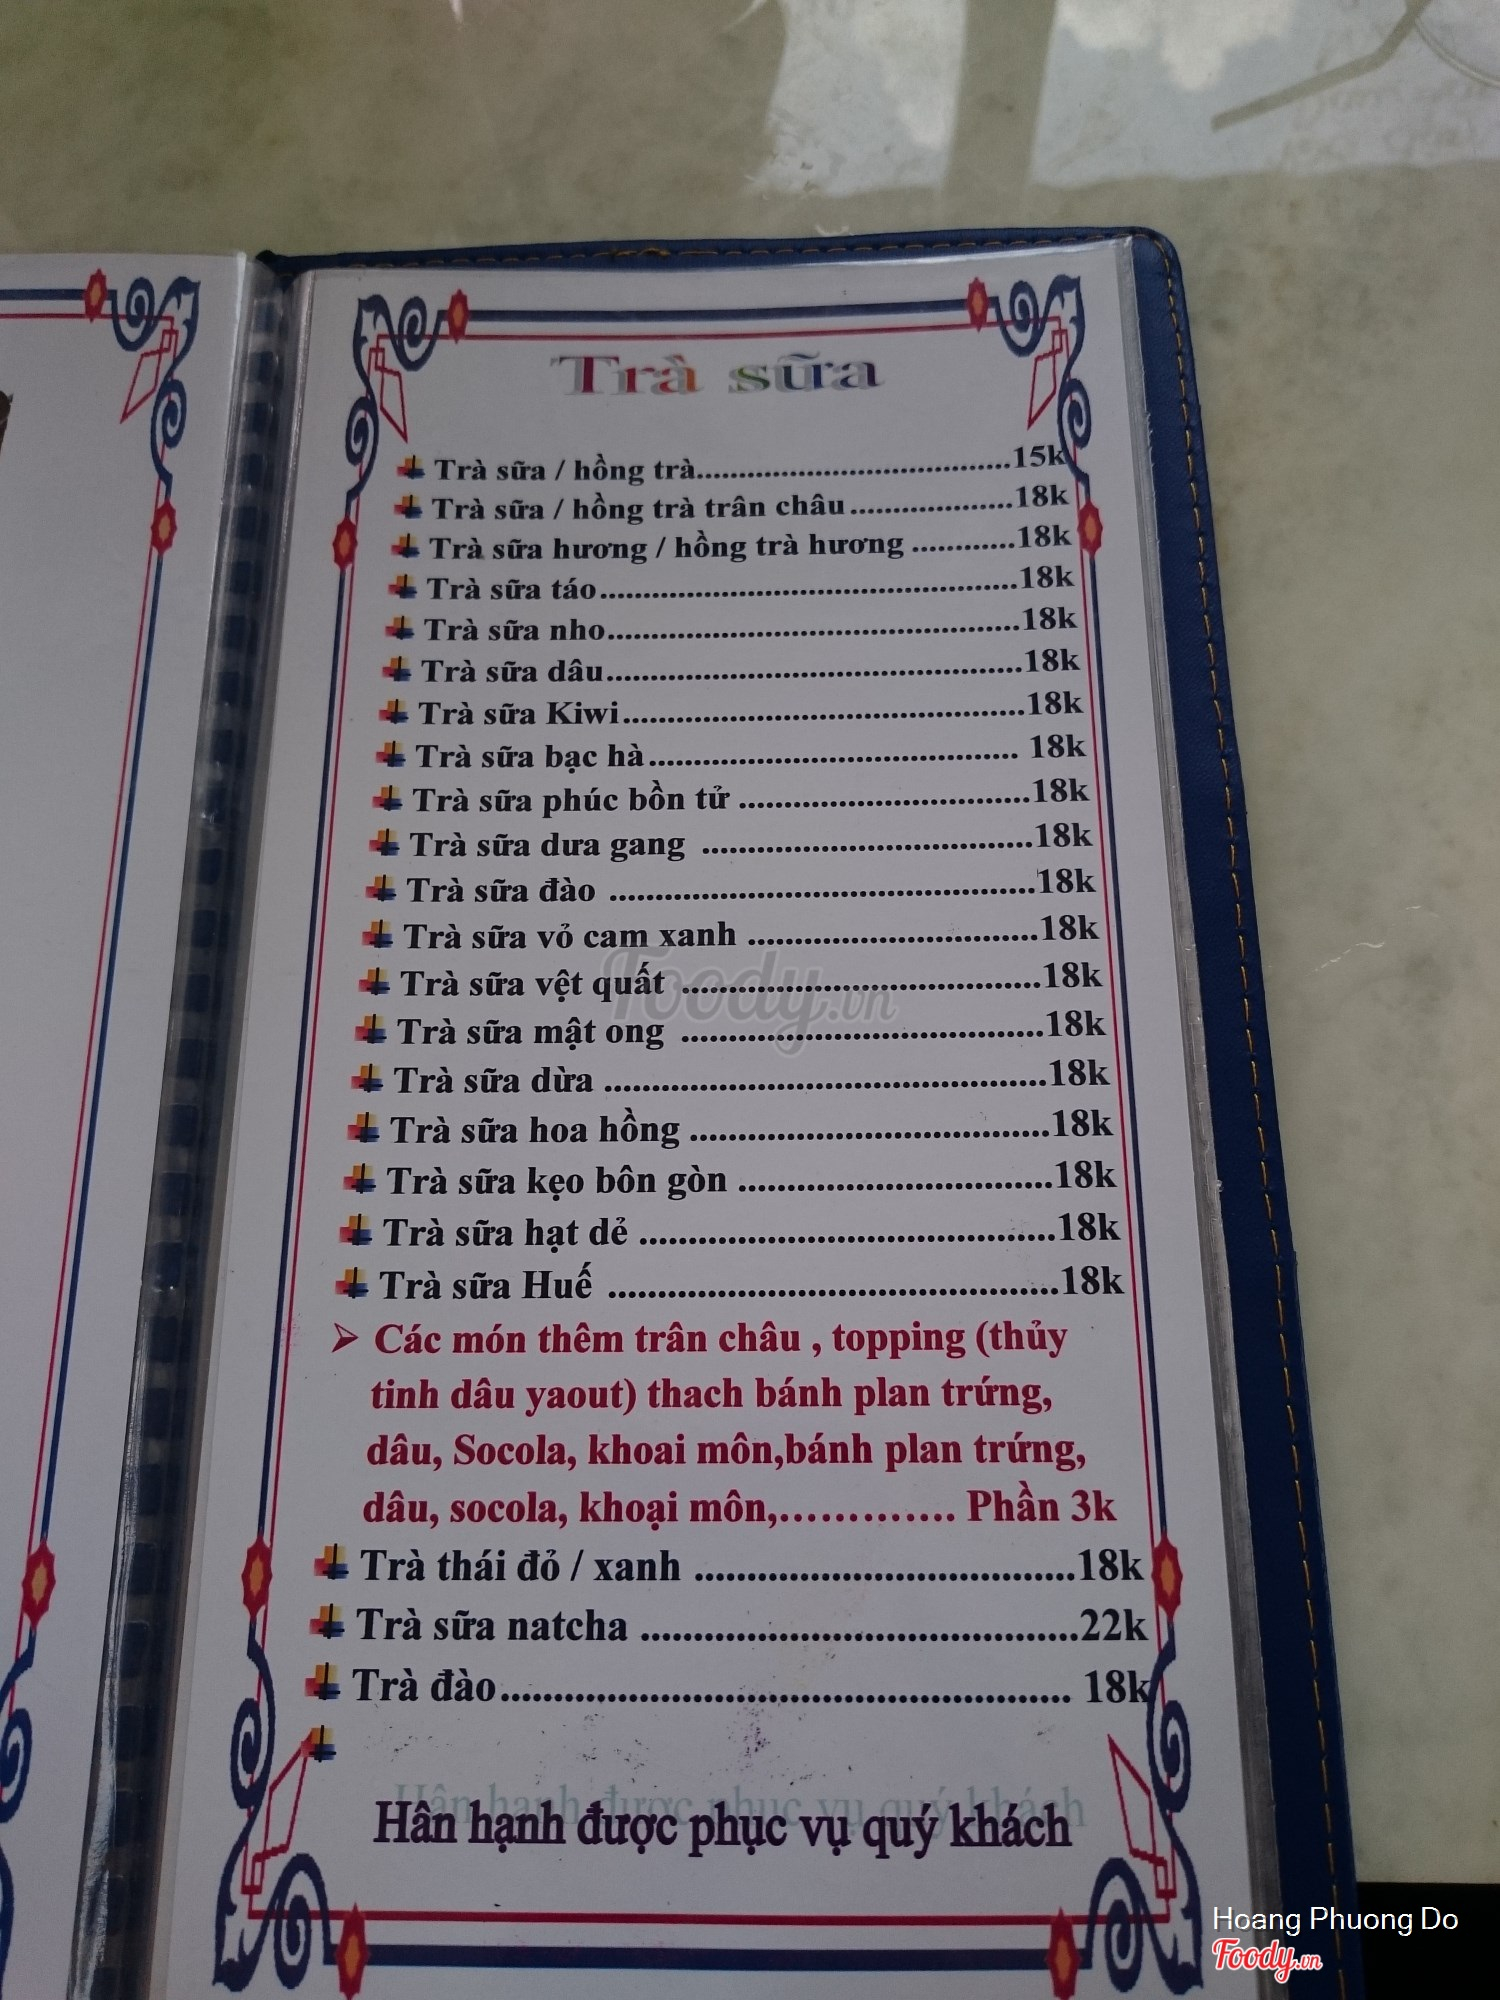 Trà sữa
Trà sữa / hồng trà................................15k
Trà sữa / hồng trà trân châu....................18k
Trà sữa hương / hồng trà hương ............18k
Trà sữa táo................................................18k
Trà sữa nho...............................................18k
Trà sữa dâu...............................................18k
Trà sữa Kiwi.............................................18k
Trà sữa bạc hà......................................... 18k
Trà sữa phúc bồn tử ................................18k
Trà sữa dưa gang ....................................18k
Trà sữa đào ..............................................18k
Trà sữa vỏ cam xanh ...............................18k
Trà sữa vệt quất ......................................18k
Trà sữa mật ong ......................................18k
Trà sữa dừa ..............................................18k
Trà sữa hoa hồng .....................................18k
Trà sữa kẹo bôn gòn ................................18k
Trà sữa hạt dẻ ..........................................18k
Trà sữa Huế .............................................18k
Các món thêm trân châu , topping (thủy
tinh dâu yaout) thach bánh plan trứng,
dâu, Socola, khoai môn,bánh plan trứng,
dâu, socola, khoại môn,............. Phần 3k
Trà thái đỏ / xanh ....................................18k
Trà sữa natcha .........................................22k
Trà đào..................................................... 18k
Hân hạnh được phục vụ quý khách
Foody.vn
Hoang Phuong Do
Foody.vn